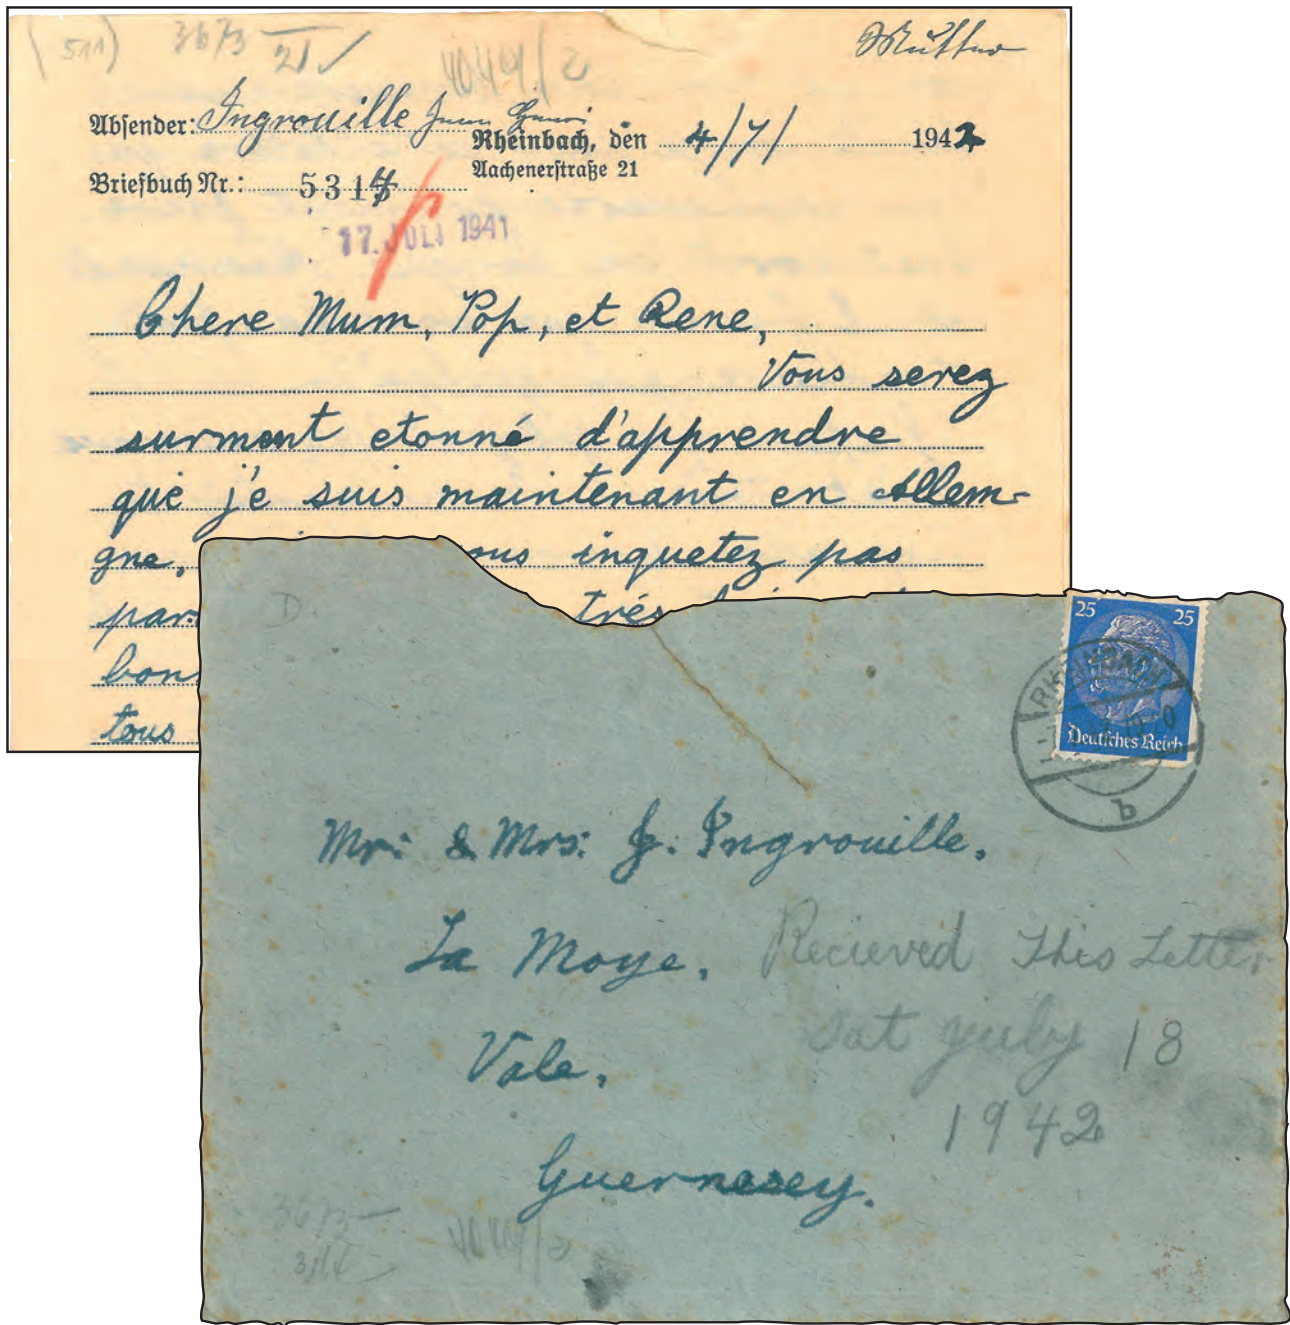 (511) 3673 21
Mutter
Absender: Ingrouille
Rheinbach, den 4/7/ 1942
Aachenerstraße 21
Briefbuch Nr.: 5317
17. JULI 1941
Chere Mum, Pop, et Rene,
Vous serez
surment etonné d'apprendre
que je suis maintenant en Allem-
gne, inquetez pas
trés
tous
D.
25 25
RHEINBACH
Deutsches Reich
b
Mr: & Mrs: J. Ingrouille.
La Moye.
Vale.
Guernesey.
Recieved This Letter
Sat July 18
1942
3673